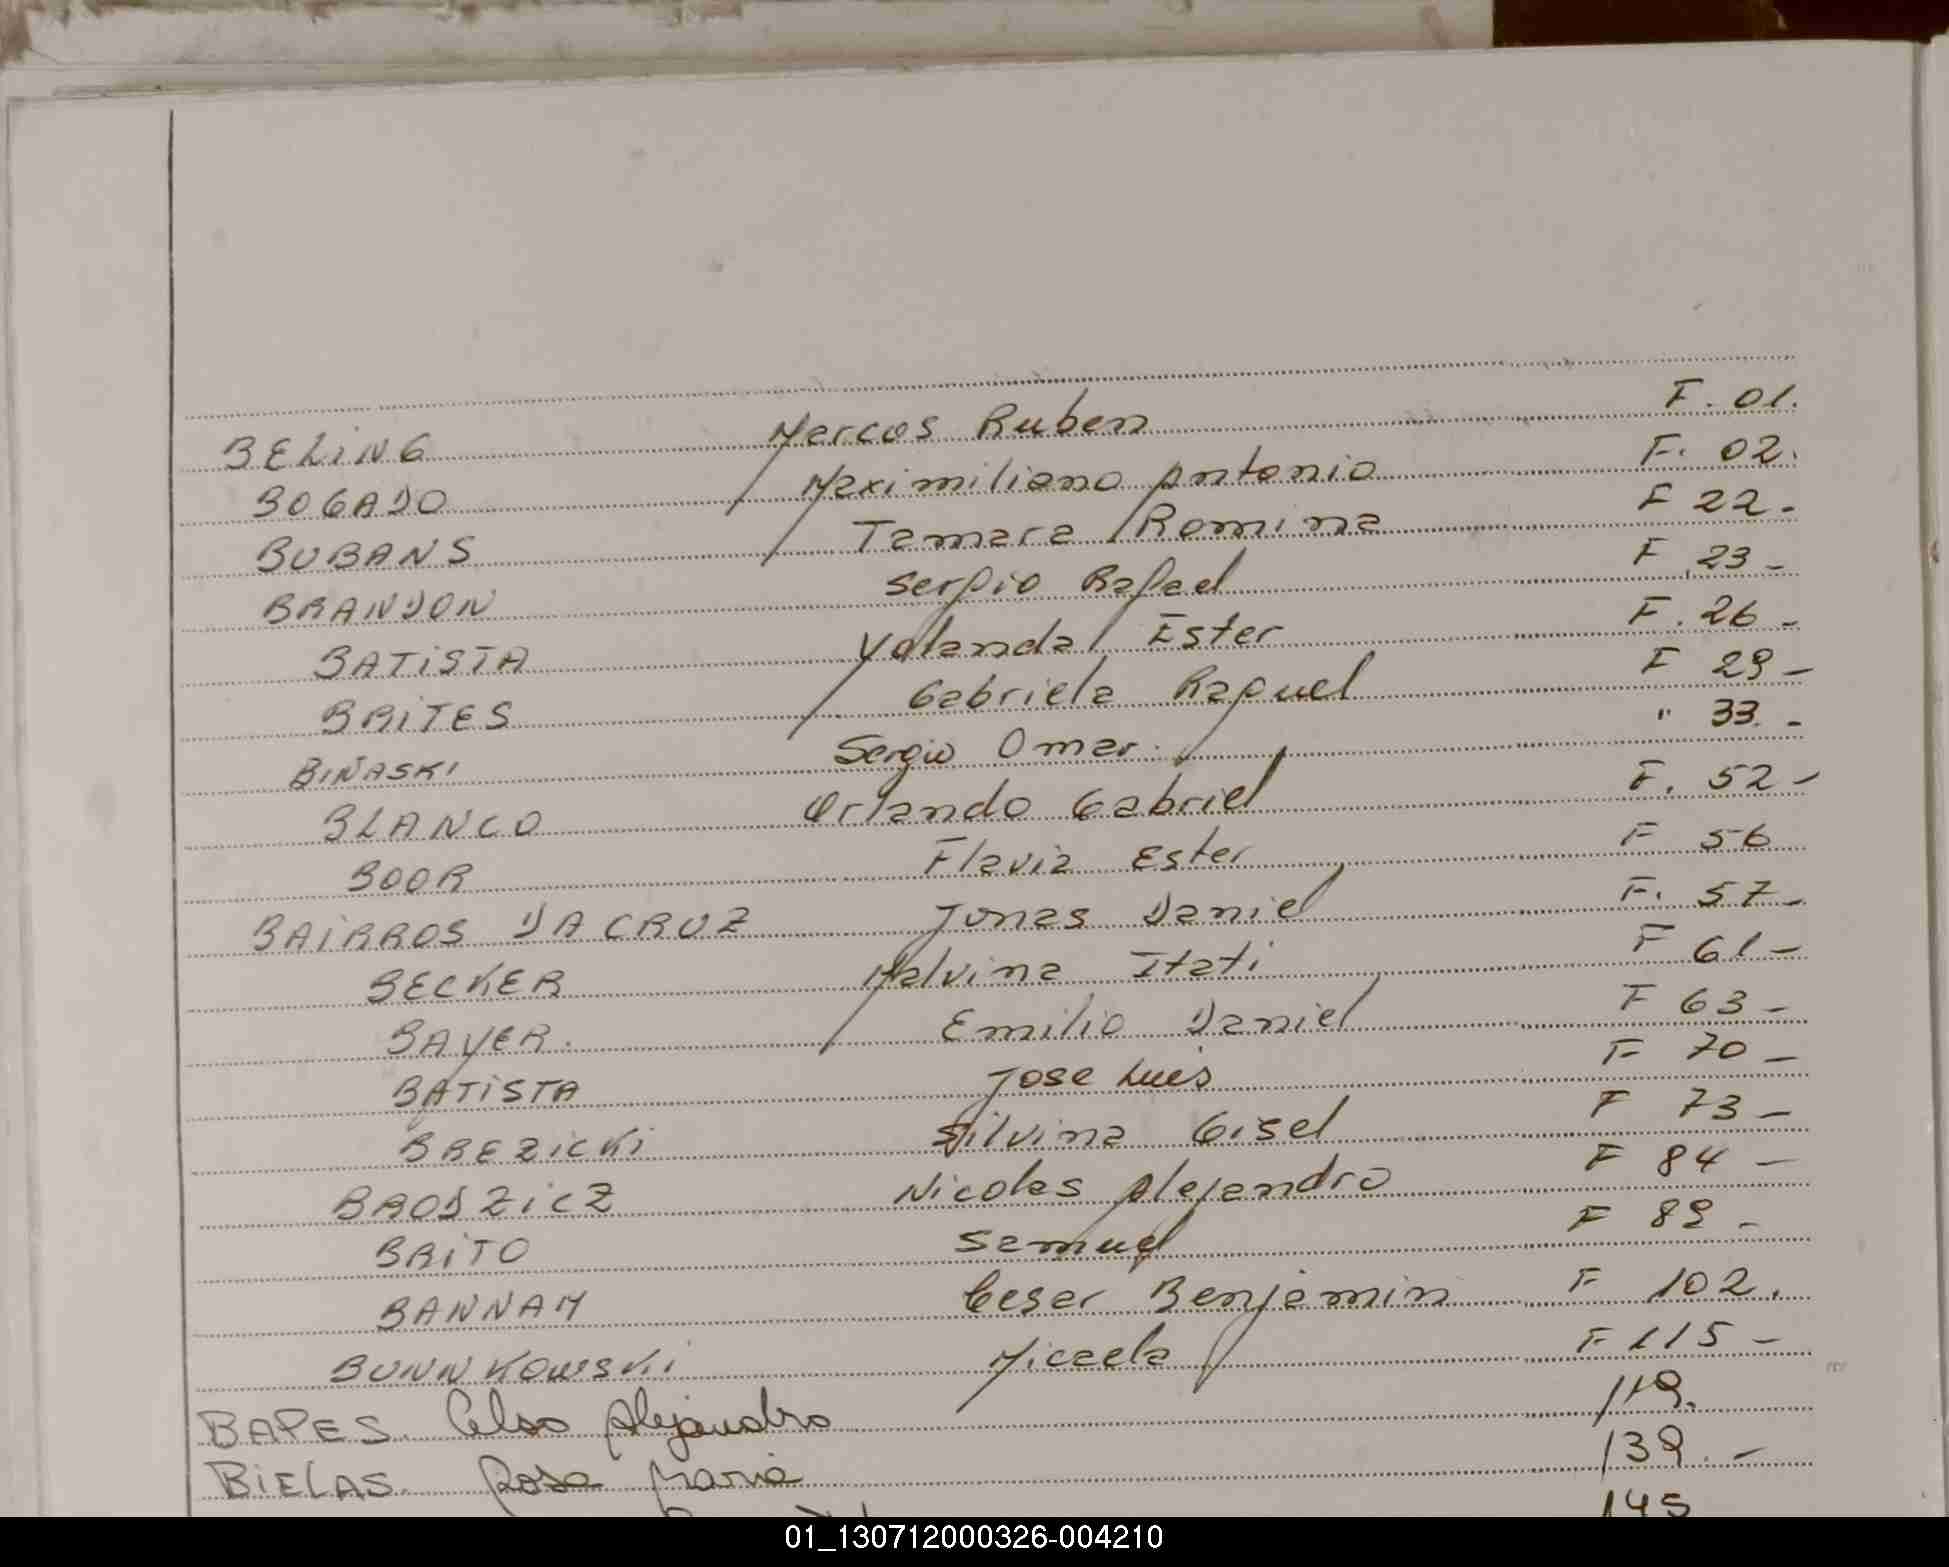 BELING Marcos Ruben F. 01.
BOGADO Maximiliano Antonio F. 02.
BUBANS Tamara Romina F 22-
BRANDON Sergio Rafael F 23-
BATISTA Yolanda Ester F. 26-
BRITES Gabriela Raquel F 29-
BIÑASKI Sergio Omar. " 33-
BLANCO Orlando Gabriel F. 52-
BOOR Flavia Ester F 56
BAIRROS DA CRUZ Jonas Daniel F. 57-
BECKER Malvina Itati F 61-
BAYER. Emilio Daniel F 63-
BATISTA Jose Luis F 70-
BREZICKI Silvina Gisel F 73-
BRODZICZ Nicolas Alejandro F 84-
BRITO Samuel F 89-
BANNAM Cesar Benjamin F 102.
BUNNKOWSKI Micaela F 115-
BAPES. Celso Alejandro 119.
BIELAS. Rosa Maria 139.-
145
01_130712000326-004210